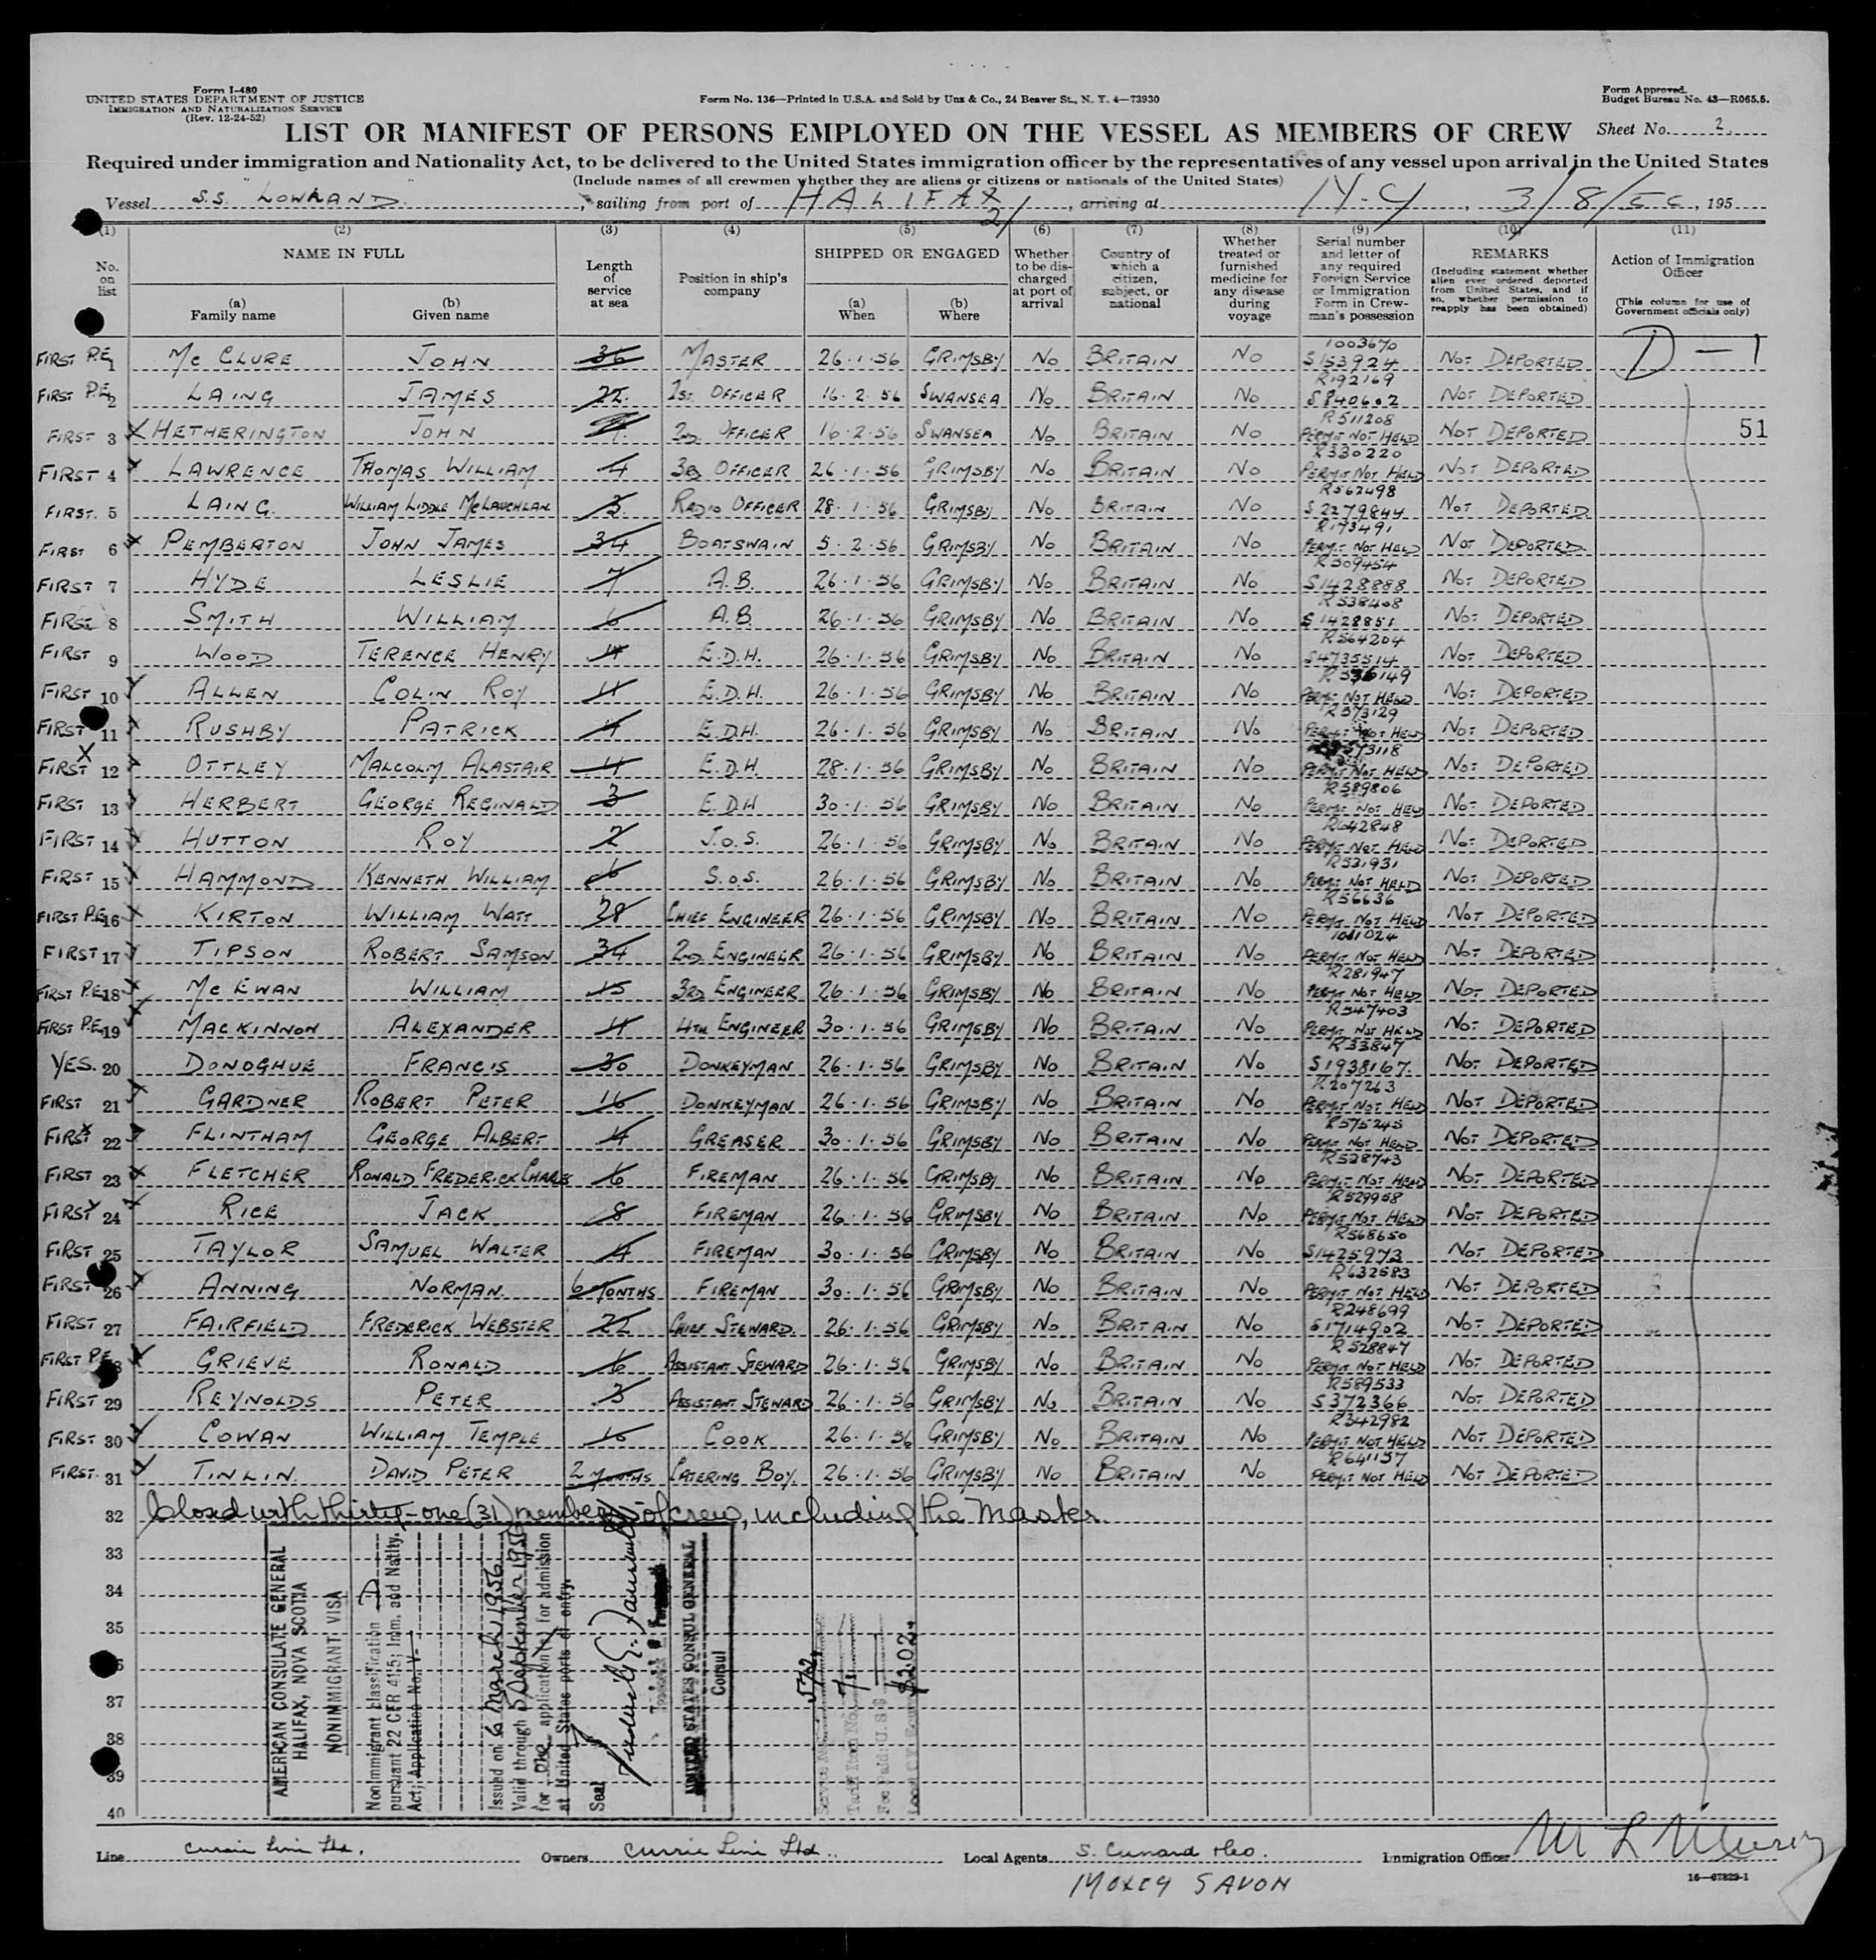 Form I-480
UNITED STATES DEPARTMENT OF JUSTICE
IMMIGRATION AND NATURALIZATION SERVICE
(Rev. 12-24-52)
Form No. 136—Printed in U.S.A. and Sold by Unz & Co., 24 Beaver St., N. Y. 4—73930
Form Approved.
Budget Bureau No. 43—R065.5.
LIST OR MANIFEST OF PERSONS EMPLOYED ON THE VESSEL AS MEMBERS OF CREW Sheet No. 2.
Required under immigration and Nationality Act, to be delivered to the United States immigration officer by the representatives of any vessel upon arrival in the United States
(Include names of all crewmen whether they are aliens or citizens or nationals of the United States)
Vessel S.S. "LOWLAND", sailing from port of HALIFAX, arriving at N.Y, 3/8/56, 195
(1) (2) (3) (4) (5) (6) (7) (8) (9) (10) (11)
No. on list
NAME IN FULL
(a) Family name
(b) Given name
Length of service at sea
Position in ship's company
SHIPPED OR ENGAGED
(a) When
(b) Where
Whether to be discharged at port of arrival
Country of which a citizen, subject, or national
Whether treated or furnished medicine for any disease during voyage
Serial number and letter of any required Foreign Service or Immigration Form in Crewman's possession
REMARKS
(Including statement whether alien ever ordered deported from United States, and if so, whether permission to reapply has been obtained)
Action of Immigration Officer
(This column for use of Government officials only)
D — 1
51
FIRST P.E. 1 McCLURE JOHN 36 MASTER 26.1.56 GRIMSBY No BRITAIN No 1003670 S153924 NOT DEPORTED
FIRST P.E. 2 LAING JAMES 22 1ST OFFICER 16.2.56 SWANSEA No BRITAIN No R192169 S840602 NOT DEPORTED
FIRST 3 X HETHERINGTON JOHN 2ND OFFICER 16.2.56 SWANSEA No BRITAIN No R511208 PERMIT NOT HELD NOT DEPORTED
FIRST 4 LAWRENCE THOMAS WILLIAM 4 3RD OFFICER 26.1.56 GRIMSBY No BRITAIN No R330220 PERMIT NOT HELD NOT DEPORTED
FIRST. 5 LAING. WILLIAM LIDDLE McLAUCHLAN 3 RADIO OFFICER 28.1.56 GRIMSBY No BRITAIN No R562498 S2279844 NOT DEPORTED
FIRST 6 PEMBERTON JOHN JAMES 34 BOATSWAIN 5.2.56 GRIMSBY No BRITAIN No R173491 PERMIT NOT HELD NOT DEPORTED
FIRST 7 HYDE LESLIE 7 A.B. 26.1.56 GRIMSBY No BRITAIN No R509454 S1428888 NOT DEPORTED
FIRST 8 SMITH WILLIAM 6 A.B. 26.1.56 GRIMSBY No BRITAIN No R538408 S1428851 NOT DEPORTED
FIRST 9 WOOD TERENCE HENRY 4 E.D.H. 26.1.56 GRIMSBY No BRITAIN No R564204 S4735514 NOT DEPORTED
FIRST 10 ALLEN COLIN ROY 4 E.D.H. 26.1.56 GRIMSBY No BRITAIN No R536149 PERMIT NOT HELD NOT DEPORTED
FIRST 11 RUSHBY PATRICK 4 E.D.H. 26.1.56 GRIMSBY No BRITAIN No R573129 PERMIT NOT HELD NOT DEPORTED
FIRST 12 OTTLEY MALCOLM ALASTAIR 4 E.D.H. 28.1.56 GRIMSBY No BRITAIN No PERMIT NOT HELD NOT DEPORTED
FIRST 13 HERBERT GEORGE REGINALD 3 E.D.H 30.1.56 GRIMSBY No BRITAIN No R589806 PERMIT NOT HELD NOT DEPORTED
FIRST 14 HUTTON ROY 2 J.O.S. 26.1.56 GRIMSBY No BRITAIN No R642848 PERMIT NOT HELD NOT DEPORTED
FIRST 15 HAMMOND KENNETH WILLIAM 6 S.O.S. 26.1.56 GRIMSBY No BRITAIN No R531931 PERMIT NOT HELD NOT DEPORTED
FIRST P.E. 16 KIRTON WILLIAM WATT 28 CHIEF ENGINEER 26.1.56 GRIMSBY No BRITAIN No R56636 PERMIT NOT HELD NOT DEPORTED
FIRST 17 TIPSON ROBERT SAMSON 34 2ND ENGINEER 26.1.56 GRIMSBY No BRITAIN No 1061024 PERMIT NOT HELD NOT DEPORTED
FIRST P.E. 18 McEWAN WILLIAM 15 3RD ENGINEER 26.1.56 GRIMSBY No BRITAIN No R281947 PERMIT NOT HELD NOT DEPORTED
FIRST P.E. 19 MACKINNON ALEXANDER 4 4TH ENGINEER 30.1.56 GRIMSBY No BRITAIN No R547403 PERMIT NOT HELD NOT DEPORTED
YES. 20 DONOGHUE FRANCIS 30 DONKEYMAN 26.1.56 GRIMSBY No BRITAIN No R33847 S1938167. NOT DEPORTED
FIRST 21 GARDNER ROBERT PETER 16 DONKEYMAN 26.1.56 GRIMSBY No BRITAIN No R207263 PERMIT NOT HELD NOT DEPORTED
FIRST 22 FLINTHAM GEORGE ALBERT 4 GREASER 30.1.56 GRIMSBY No BRITAIN No R575245 PERMIT NOT HELD NOT DEPORTED
FIRST 23 FLETCHER RONALD FREDERICK CHARLES 6 FIREMAN 26.1.56 GRIMSBY No BRITAIN No R528743 PERMIT NOT HELD NOT DEPORTED
FIRST 24 RICE JACK 8 FIREMAN 26.1.56 GRIMSBY No BRITAIN No R529958 PERMIT NOT HELD NOT DEPORTED
FIRST 25 TAYLOR SAMUEL WALTER 4 FIREMAN 30.1.56 GRIMSBY No BRITAIN No R568650 S1425973 NOT DEPORTED
FIRST 26 ANNING NORMAN 6 MONTHS FIREMAN 30.1.56 GRIMSBY No BRITAIN No R632583 PERMIT NOT HELD NOT DEPORTED
FIRST 27 FAIRFIELD FREDERICK WEBSTER 22 CHIEF STEWARD. 26.1.56 GRIMSBY No BRITAIN No R248699 S1714902 NOT DEPORTED
FIRST P.E. GRIEVE RONALD 6 ASSISTANT STEWARD 26.1.56 GRIMSBY No BRITAIN No R528847 PERMIT NOT HELD NOT DEPORTED
FIRST 29 REYNOLDS PETER 3 ASSISTANT STEWARD 26.1.56 GRIMSBY No BRITAIN No R589533 S372366 NOT DEPORTED
FIRST 30 COWAN WILLIAM TEMPLE COOK 26.1.56 GRIMSBY No BRITAIN No R342982 PERMIT NOT HELD NOT DEPORTED
FIRST. 31 TINLIN. DAVID PETER 2 MONTHS CATERING BOY. 26.1.56 GRIMSBY No BRITAIN No R641157 PERMIT NOT HELD NOT DEPORTED
32 Closed with thirty-one (31) members of crew, including the Master.
33
34
35
37
38
39
40
AMERICAN CONSULATE GENERAL
HALIFAX, NOVA SCOTIA
NONIMMIGRANT VISA
Nonimmigrant classification D
pursuant 22 CFR 41.5; Imm. and Natlty.
Act; Application No. V-
Issued on 6 March 1956
Valid through 5 September 1956
for one application(s) for admission
at United States ports of entry.
Seal
UNITED STATES CONSUL GENERAL
Consul
Service No. 572
Tariff Item No. 7
Fee Paid: U.S. $
$2.02
Line Currie Line Ltd. Owners Currie Line Ltd. Local Agents S. Cunard & Co. Immigration Officer
MOXEY SAVON
16—67829-1